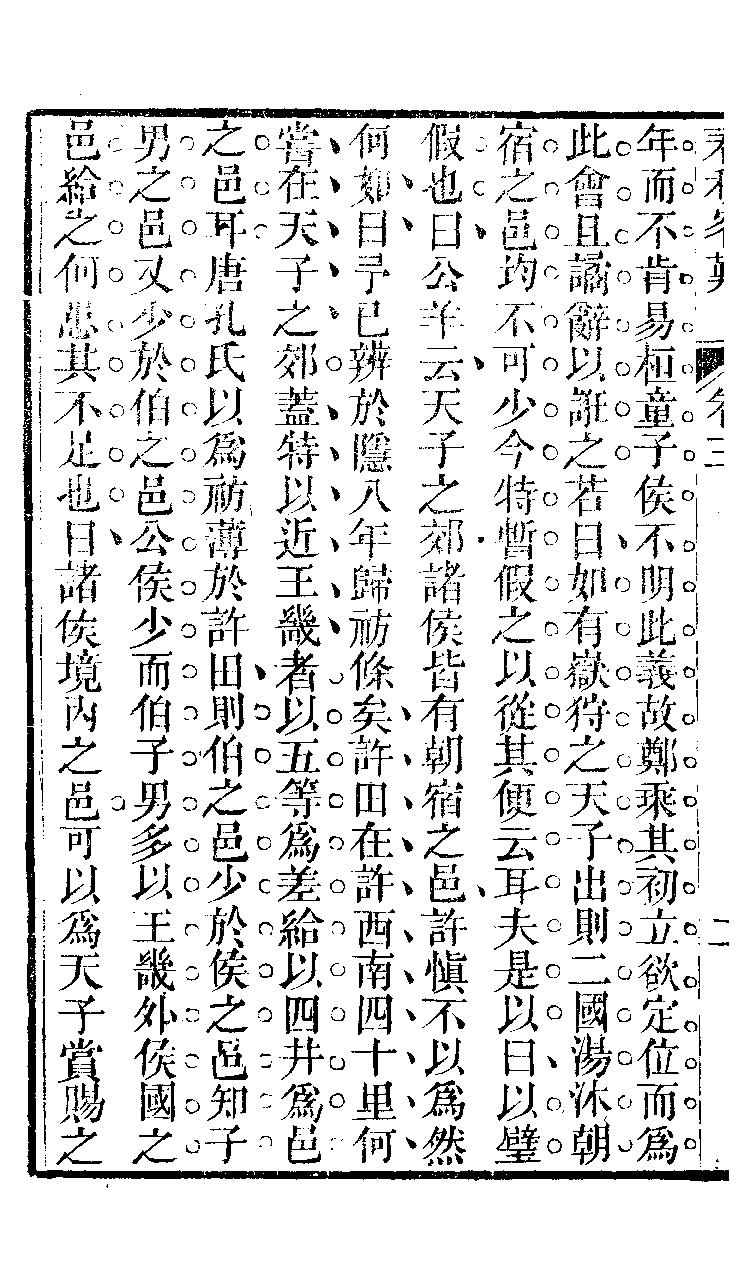 卷三
二
年而不肯易桓童子侯不明此義故鄭乘其初立欲定位而為
此會且譎辭以誑之若曰如有嶽狩之天子出則二國湯沐朝
宿之邑均不可少今特暫假之以從其便云耳夫是以曰以璧
假也曰公羊云天子之郊諸侯皆有朝宿之邑許慎不以為然
何如曰予已辨於隱八年歸祊條矣許田在許西南四十里何
嘗在天子之郊蓋特以近王畿者以五等為差給以四井為邑
之邑耳唐孔氏以為祊薄於許田則伯之邑少於侯之邑知子
男之邑又少於伯之邑公侯少而伯子男多以王畿外侯國之
邑給之何患其不足也曰諸侯境內之邑可以為天子賞賜之